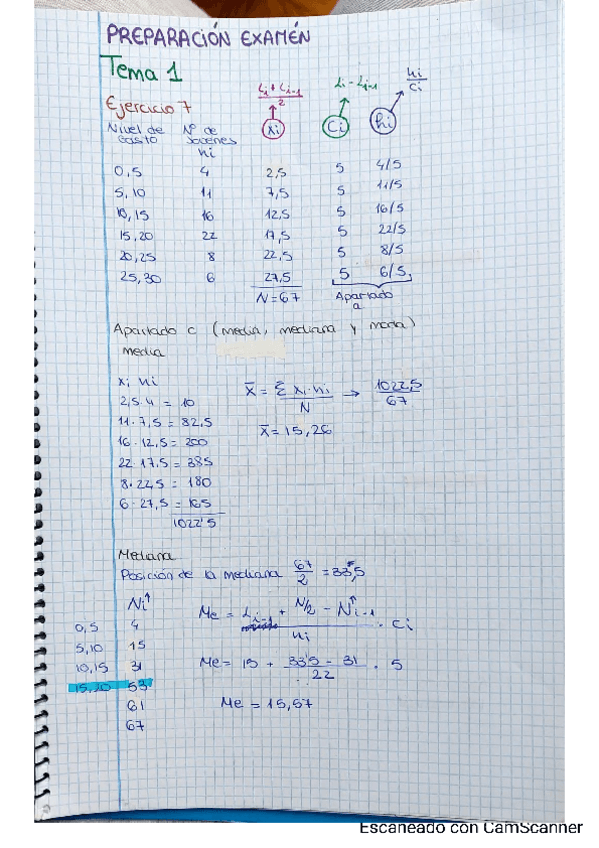 PREPARACIÓN EXAMÉN
Tema 1
Ejercicio 7
Li + Li-1 / 2
Li - Li-1
hi / ci
Nivel de gasto
Nº de jovenes ni
xi
Ci
hi
0,5 4 2,5 5 4/5
5,10 11 7,5 5 11/5
10,15 16 12,5 5 16/5
15,20 22 17,5 5 22/5
20,25 8 22,5 5 8/5
25,30 6 27,5 5 6/5
N=67 Apartado a
Apartado c (media, mediana y moda)
media
xi ni
2,5·4 = 10
11·7,5 = 82,5
16·12,5 = 200
22·17,5 = 385
8·22,5 = 180
6·27,5 = 165
1022'5
x̄ = Σ xi·ni / N → 1022,5 / 67
x̄ = 15,26
Mediana
Posición de la mediana 67/2 = 33,5
Ni↑
0,5 4
5,10 15
10,15 31
15,20 53
61
67
Me = Li-1 + N/2 - Ni-1↑ / ni · ci
Me = 15 + 33'5 - 31 / 22 · 5
Me = 15,57
Escaneado con CamScanner